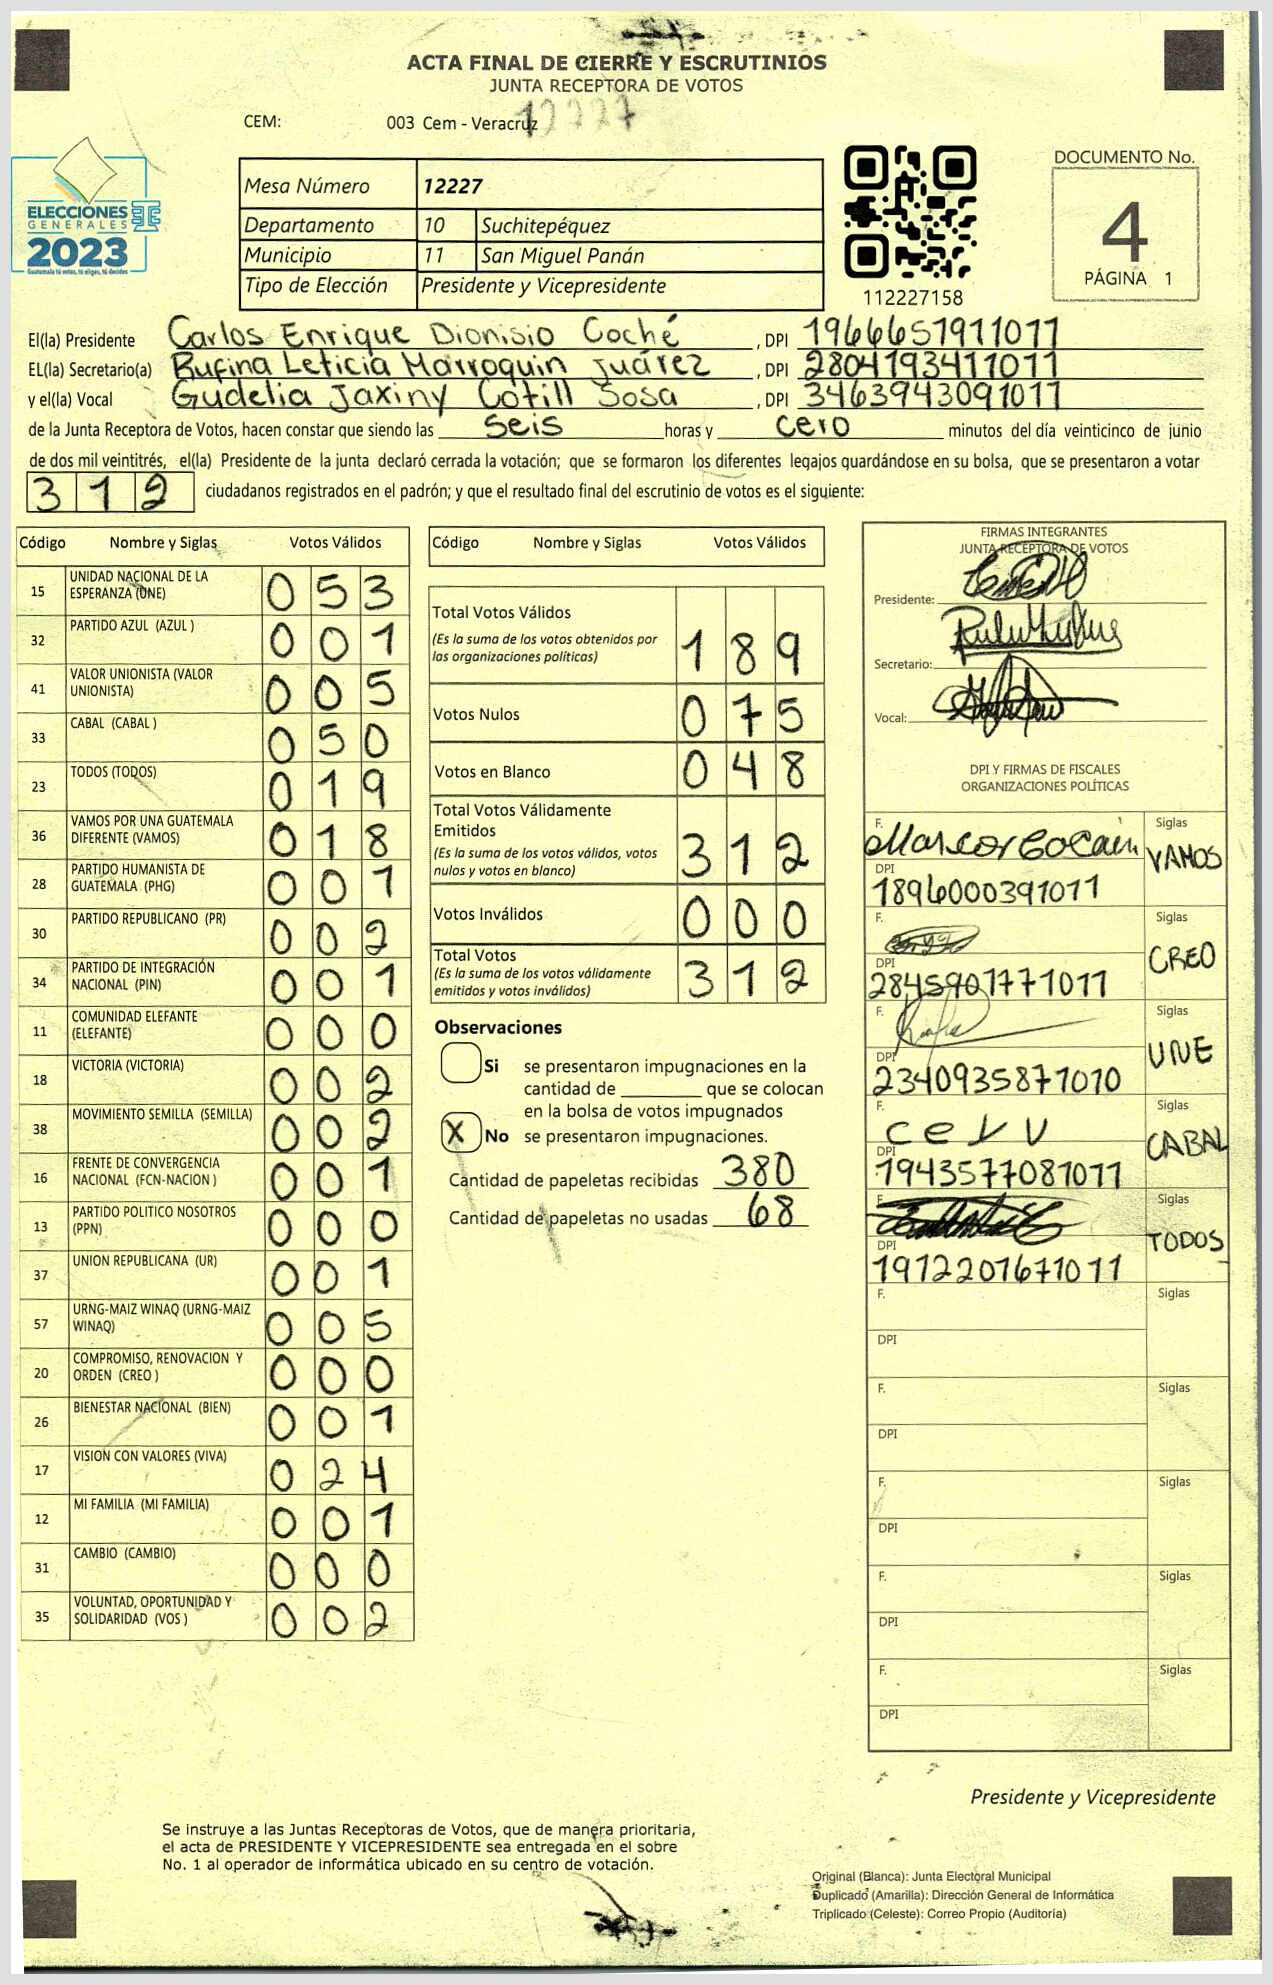 ACTA FINAL DE CIERRE Y ESCRUTINIOS
JUNTA RECEPTORA DE VOTOS
CEM: 003 Cem - Veracruz
12227
ELECCIONES
GENERALES
2023
Guatemala tú votas, tú eliges, tú decides
Mesa Número 12227
Departamento 10 Suchitepéquez
Municipio 11 San Miguel Panán
Tipo de Elección Presidente y Vicepresidente
112227158
DOCUMENTO No.
4
PÁGINA 1
El(la) Presidente Carlos Enrique Dionisio Coché , DPI 1966651911011
EL(la) Secretario(a) Rufina Leticia Marroquin Juárez , DPI 2804193411011
y el(la) Vocal Gudelia Jaxiny Cotill Sosa , DPI 3463943091011
de la Junta Receptora de Votos, hacen constar que siendo las seis horas y cero minutos del día veinticinco de junio
de dos mil veintitrés, el(la) Presidente de la junta declaró cerrada la votación; que se formaron los diferentes legajos guardándose en su bolsa, que se presentaron a votar
312 ciudadanos registrados en el padrón; y que el resultado final del escrutinio de votos es el siguiente:
Código Nombre y Siglas Votos Válidos
15 UNIDAD NACIONAL DE LA ESPERANZA (UNE) 053
32 PARTIDO AZUL (AZUL ) 001
41 VALOR UNIONISTA (VALOR UNIONISTA) 005
33 CABAL (CABAL ) 050
23 TODOS (TODOS) 019
36 VAMOS POR UNA GUATEMALA DIFERENTE (VAMOS) 018
28 PARTIDO HUMANISTA DE GUATEMALA (PHG) 001
30 PARTIDO REPUBLICANO (PR) 002
34 PARTIDO DE INTEGRACIÓN NACIONAL (PIN) 001
11 COMUNIDAD ELEFANTE (ELEFANTE) 000
18 VICTORIA (VICTORIA) 002
38 MOVIMIENTO SEMILLA (SEMILLA) 002
16 FRENTE DE CONVERGENCIA NACIONAL (FCN-NACION ) 001
13 PARTIDO POLITICO NOSOTROS (PPN) 000
37 UNION REPUBLICANA (UR) 001
57 URNG-MAIZ WINAQ (URNG-MAIZ WINAQ) 005
20 COMPROMISO, RENOVACION Y ORDEN (CREO ) 000
26 BIENESTAR NACIONAL (BIEN) 001
17 VISION CON VALORES (VIVA) 024
12 MI FAMILIA (MI FAMILIA) 001
31 CAMBIO (CAMBIO) 000
35 VOLUNTAD, OPORTUNIDAD Y SOLIDARIDAD (VOS ) 002
Código Nombre y Siglas Votos Válidos
Total Votos Válidos 189
(Es la suma de los votos obtenidos por
las organizaciones políticas)
Votos Nulos 075
Votos en Blanco 048
Total Votos Válidamente
Emitidos 312
(Es la suma de los votos válidos, votos
nulos y votos en blanco)
Votos Inválidos 000
Total Votos 312
(Es la suma de los votos válidamente
emitidos y votos inválidos)
Observaciones
Si se presentaron impugnaciones en la
cantidad de ________ que se colocan
en la bolsa de votos impugnados
X No se presentaron impugnaciones.
Cantidad de papeletas recibidas 380
Cantidad de papeletas no usadas 68
FIRMAS INTEGRANTES
JUNTA RECEPTORA DE VOTOS
Presidente:
Secretario:
Vocal:
DPI Y FIRMAS DE FISCALES
ORGANIZACIONES POLÍTICAS
F. Siglas VAMOS
DPI 1896000391011
F. Siglas CREO
DPI 2845901771011
F. Siglas UNE
DPI 2340935871010
F. Siglas CABAL
DPI 1943577081011
F. Siglas TODOS
DPI 1912201671011
F. Siglas
DPI
F. Siglas
DPI
F. Siglas
DPI
F. Siglas
DPI
F. Siglas
DPI
Presidente y Vicepresidente
Se instruye a las Juntas Receptoras de Votos, que de manera prioritaria,
el acta de PRESIDENTE Y VICEPRESIDENTE sea entregada en el sobre
No. 1 al operador de informática ubicado en su centro de votación.
Original (Blanca): Junta Electoral Municipal
Duplicado (Amarilla): Dirección General de Informática
Triplicado (Celeste): Correo Propio (Auditoría)